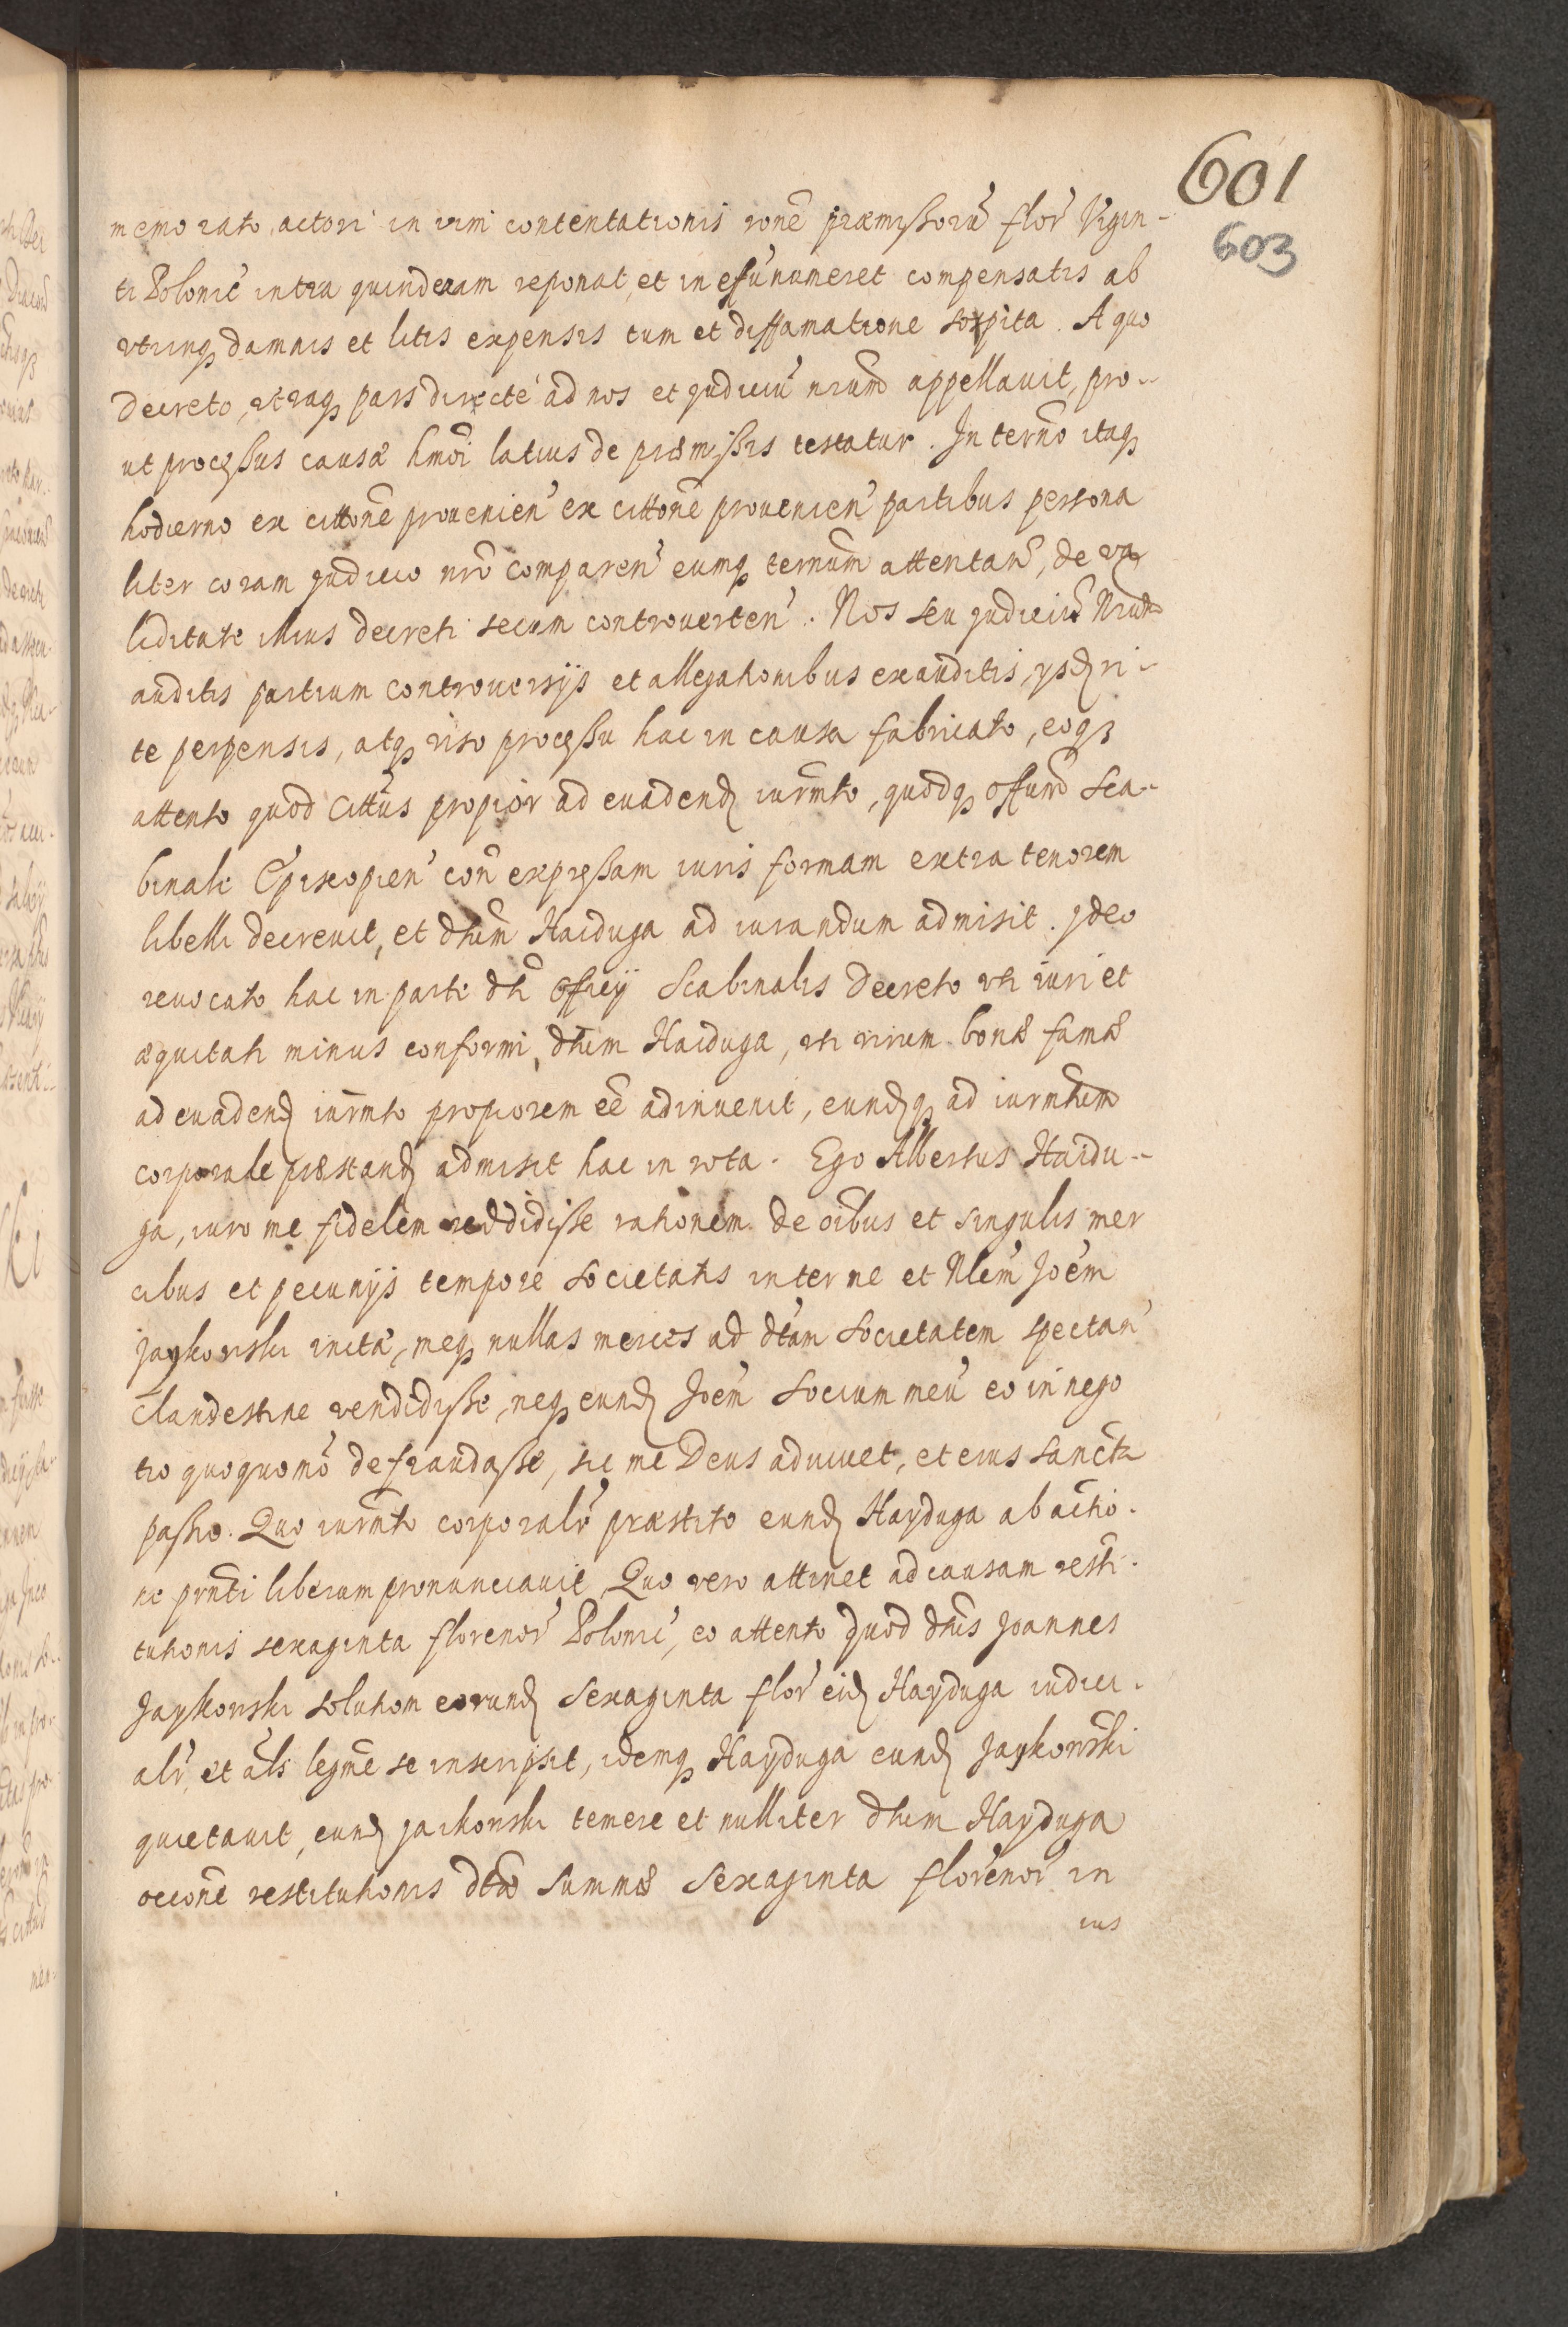 601
603
memorato, actori in vim contentationis rone præmissorũ flor̃ Vigin-
ti Poloni͠c intra quindenam reponat, et in effũ numeret compensatis ab
vtrinq damnis et litis expensis tum et diffamatione sopita. A quo
Decreto, vtraq pars directé ad nos et judiciũ nr̃um appellauit, pro-
ut processus causæ hm̃oi latius de præmissis testatur. In termo itaq
hodierno ex citt̃one prouenien̄ ex citt̃one prouenien̄ partibus persona
liter coram judicio nrõ comparen̄ eumq termum attentan̄, de va
liditate illius decreti secum controuerten̄. Nos seu judiciũ Nr̃um
auditis partium controuersijs et allegationibus exauditis, ysdɜ ri-
te perpensis, atq viso processu hac in causa fabricato, eoqɜ
attento quod Citt̃us propior ad euadendɜ iurm̃to, quodq Offum Sca-
binale Episcopien̄ con̄ expressam iuris formam extra tenorem
libelli decreuit, et dt̃um Haiduga ad iurandum admisit. Ideo
reuocato hac in parte dt̃i Offij Scabinalis Decreto vti iuri et
æquitati minus conformi, dt̃um Haiduga, vti virum bonæ famæ
ad euadendɜ iurm̃to propiorem ee͂ adinuenit, eundɜq ad iurm̃tum
corporale præstandɜ admisit hac in rota. Ego Albertus Haidu-
ga, iuro me fidelem reddidisse rationem de oĩbus et singulis mer
cibus et pecunijs tempore societatis inter me et Nlem̃ Joem̃
Jaykowski initæ, meq nullas merces ad dt̃am Societatem spectan̄
Clandestine vendidisse, neq eundɜ Joem̃ Socium meũ eo in nego
tio quoquomõ defraudasse, sic me Deus adiuuet, et eius sancta
passio. Quo iurm̃to corporalr̃ præstito eundɜ Hayduga ab actio-
ne prñti liberum pronunciauit, Quo vero attinet ad causam resti-
tutionis sexaginta florenor̃ Poloni͠c, eo attento quod dt̃us Joannes
Jaykowski solution eorundɜ Sexaginta flor̃ eidɜ Hayduga iudici-
alr̃, et als̃ legm̃e se inscripsit, idemq Hayduga eundɜ Jaykowski
quietauit, eundɜ Jaikowski temere et nulliter dt̃um Hayduga
occone͂ restitutionis dt̃æ summæ Sexaginta florenor̃ in
ius